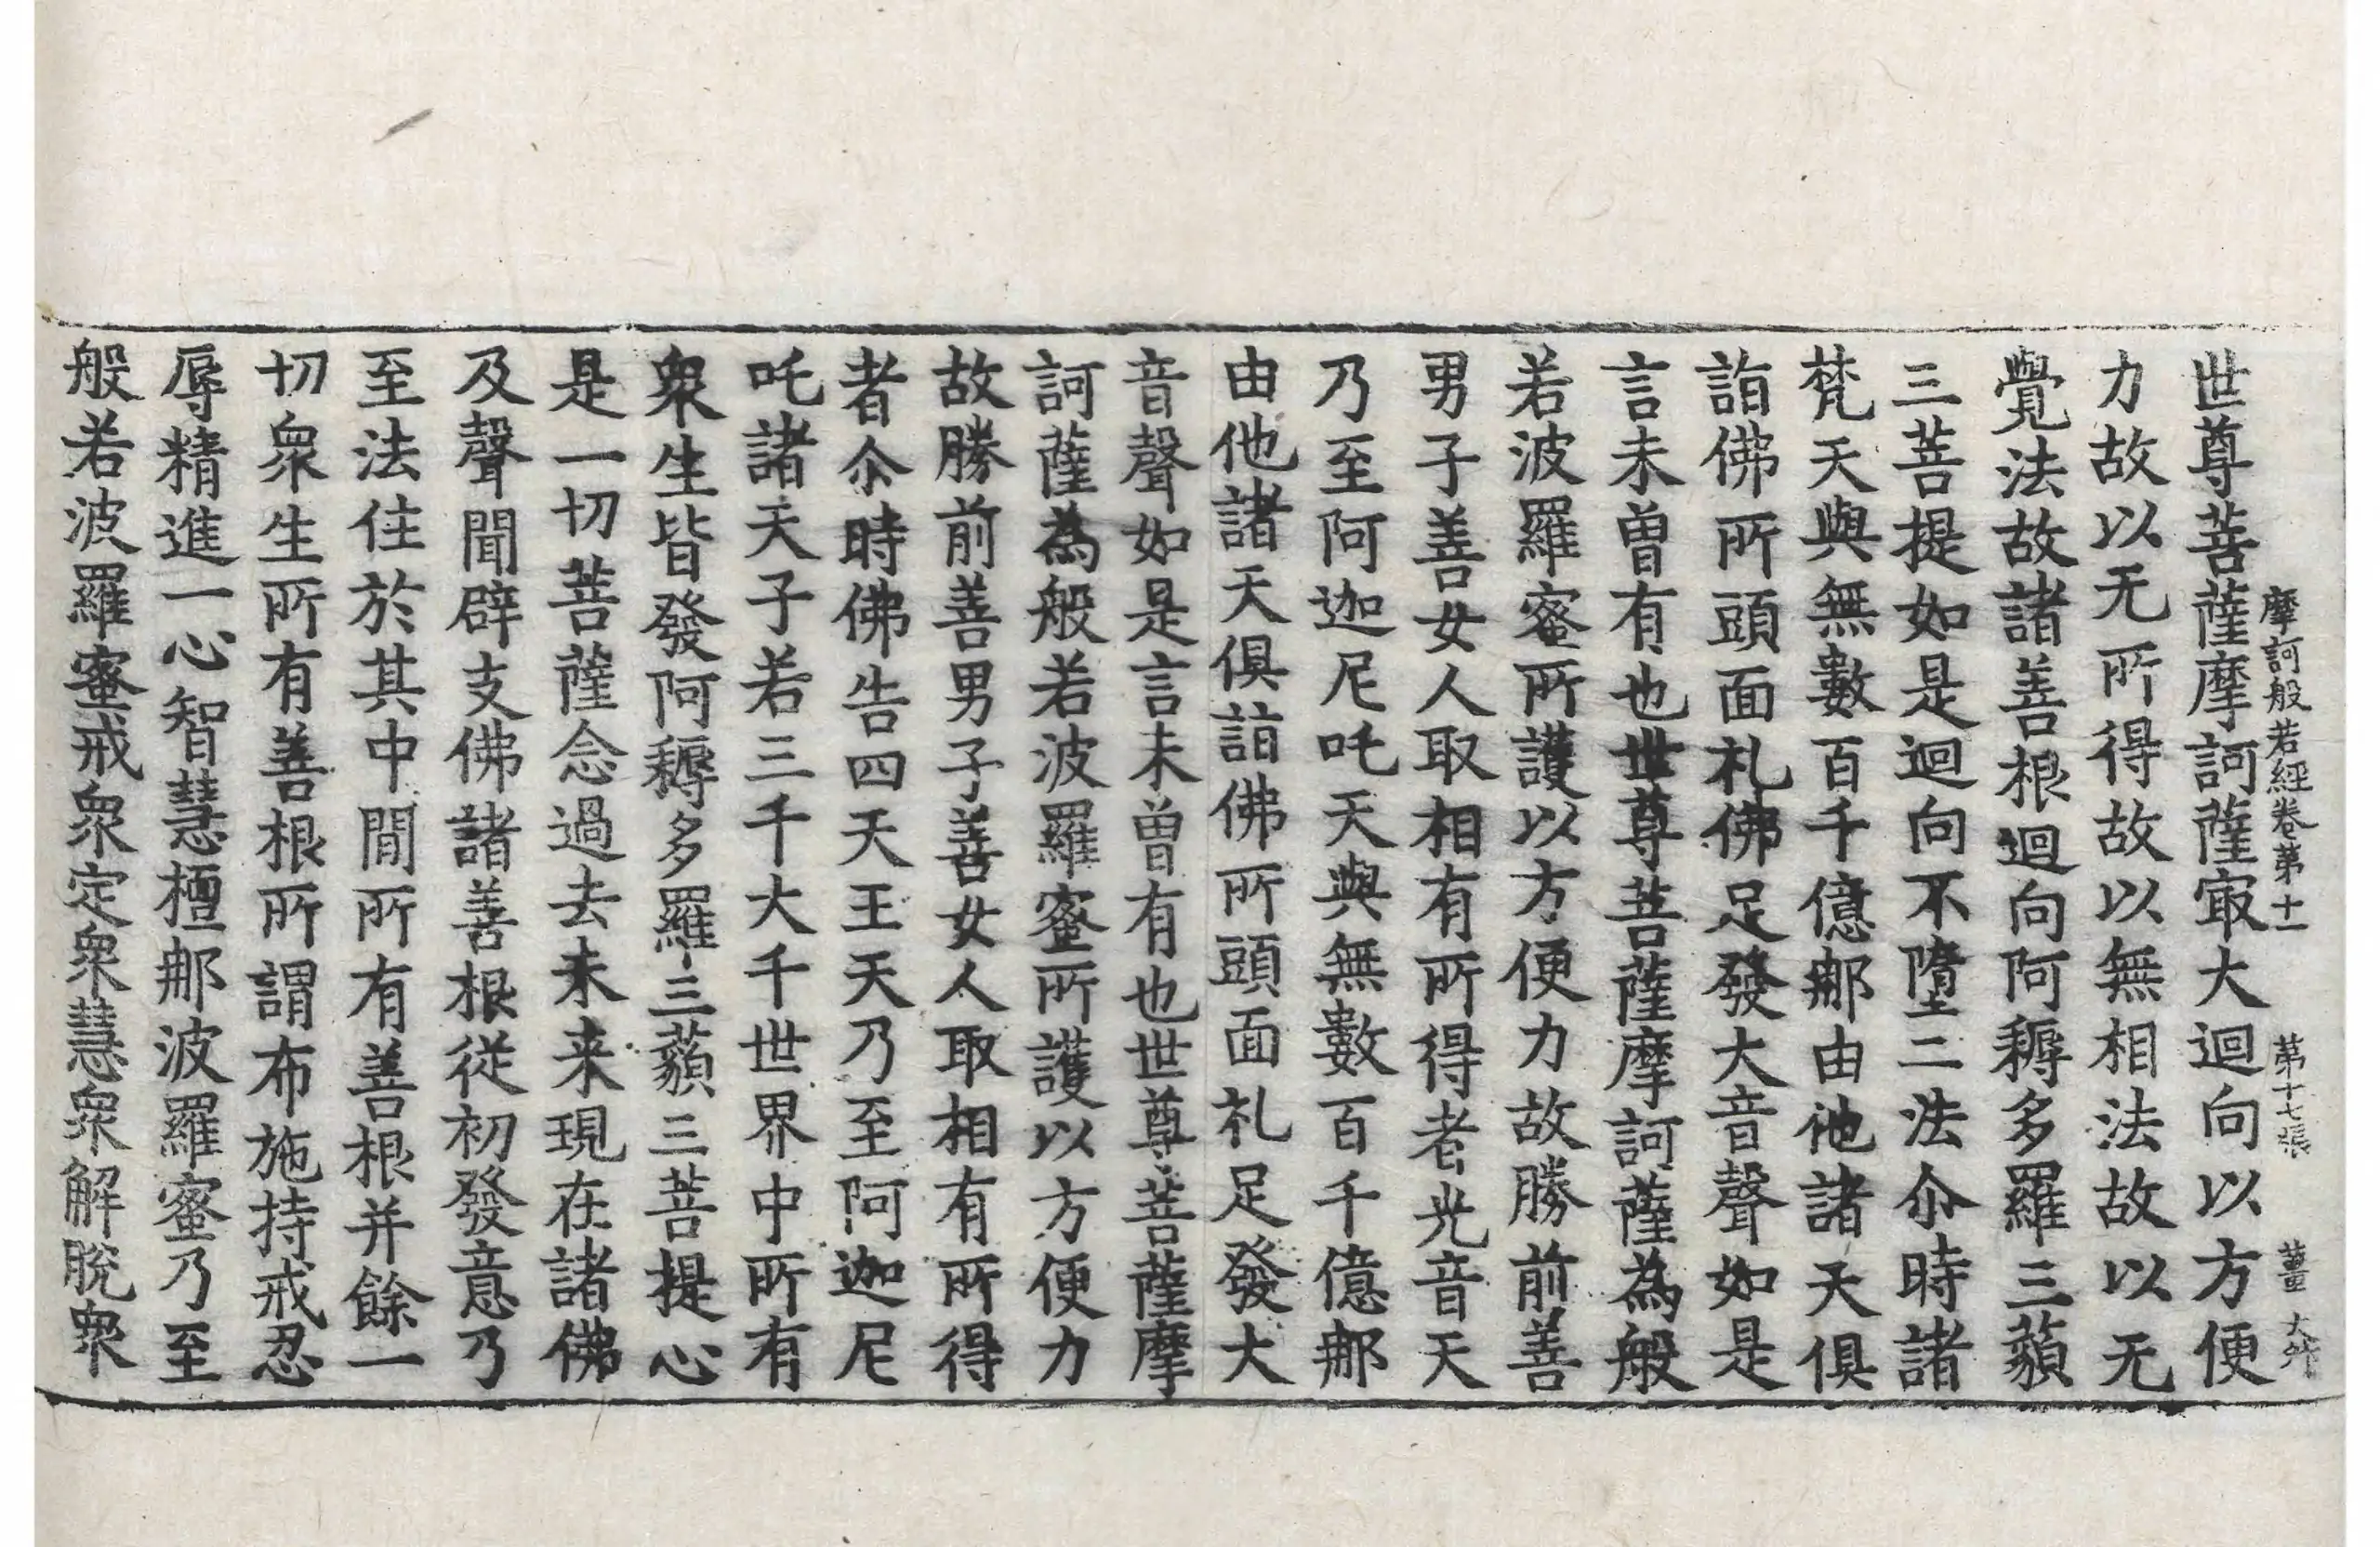 摩訶般若經卷第十一　第十七張　薑　大升
世尊菩薩摩訶薩㝡大迴向以方便
力故以无所得故以無相法故以无
覺法故諸善根迴向阿耨多羅三藐
三菩提如是迴向不墮二法尒時諸
梵天與無數百千億那由他諸天俱
詣佛所頭面礼佛足發大音聲如是
言未曾有也世尊菩薩摩訶薩為般
若波羅蜜所護以方便力故勝前善
男子善女人取相有所得者光音天
乃至阿迦尼吒天與無數百千億那
由他諸天俱詣佛所頭面礼足發大
音聲如是言未曾有也世尊菩薩摩
訶薩為般若波羅蜜所護以方便力
故勝前善男子善女人取相有所得
者尒時佛告四天王天乃至阿迦尼
吒諸天子若三千大千世界中所有
衆生皆發阿耨多羅三藐三菩提心
是一切菩薩念過去未来現在諸佛
及聲聞辟支佛諸善根從初發意乃
至法住於其中間所有善根并餘一
切衆生所有善根所謂布施持戒忍
辱精進一心智慧檀那波羅蜜乃至
般若波羅蜜戒衆定衆慧衆解脫衆